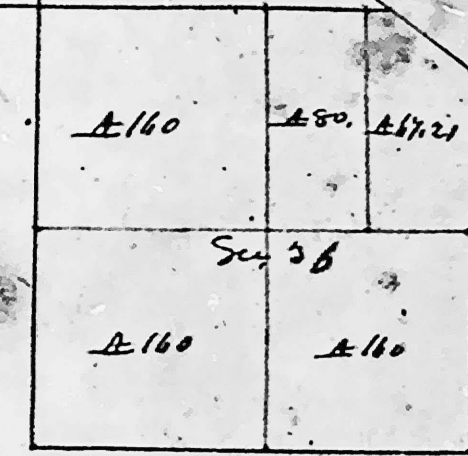 A 160 A 80. A 67.21
Sec, 36
A 160 A 160